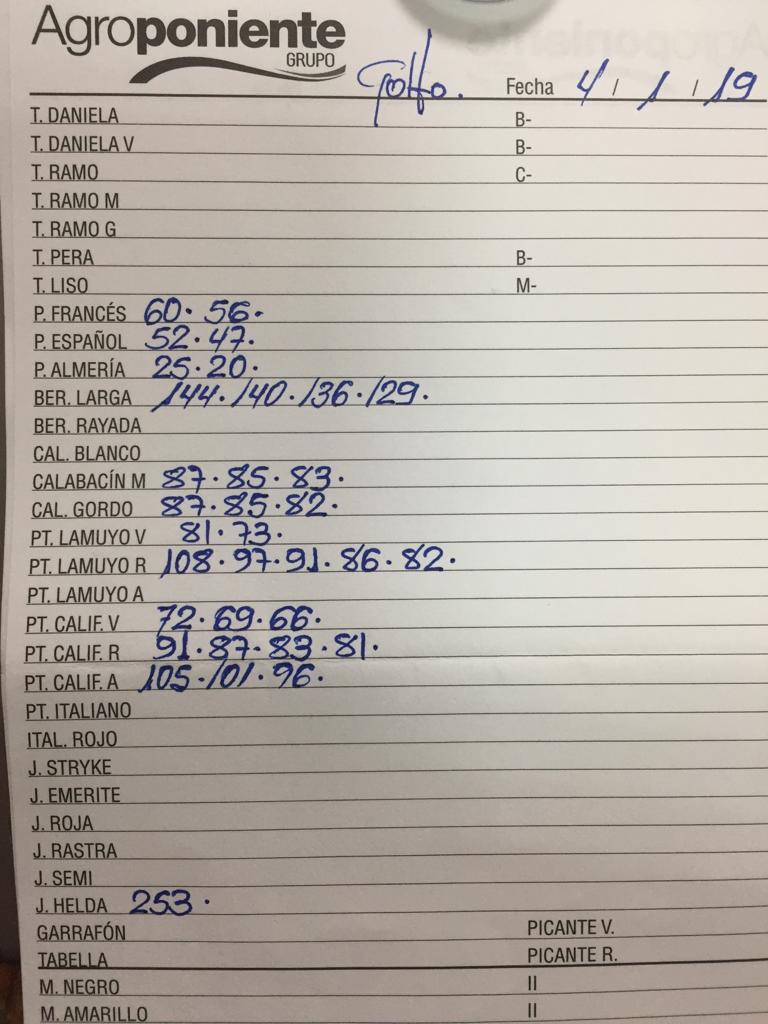 Agroponiente
GRUPO
Golfo. Fecha 4 / 1 / 19
T. DANIELA B-
T. DANIELA V B-
T. RAMO C-
T. RAMO M
T. RAMO G
T. PERA B-
T. LISO M-
P. FRANCÉS 60. 56.
P. ESPAÑOL 52. 47.
P. ALMERÍA 25. 20.
BER. LARGA 144. 140. 136. 129.
BER. RAYADA
CAL. BLANCO
CALABACÍN M 87. 85. 83.
CAL. GORDO 87. 85. 82.
PT. LAMUYO V 81. 73.
PT. LAMUYO R 108. 97. 91. 86. 82.
PT. LAMUYO A
PT. CALIF. V 72. 69. 66.
PT. CALIF. R 91. 87. 83. 81.
PT. CALIF. A 105. 101. 96.
PT. ITALIANO
ITAL. ROJO
J. STRYKE
J. EMERITE
J. ROJA
J. RASTRA
J. SEMI
J. HELDA 253.
GARRAFÓN PICANTE V.
TABELLA PICANTE R.
M. NEGRO II
M. AMARILLO II